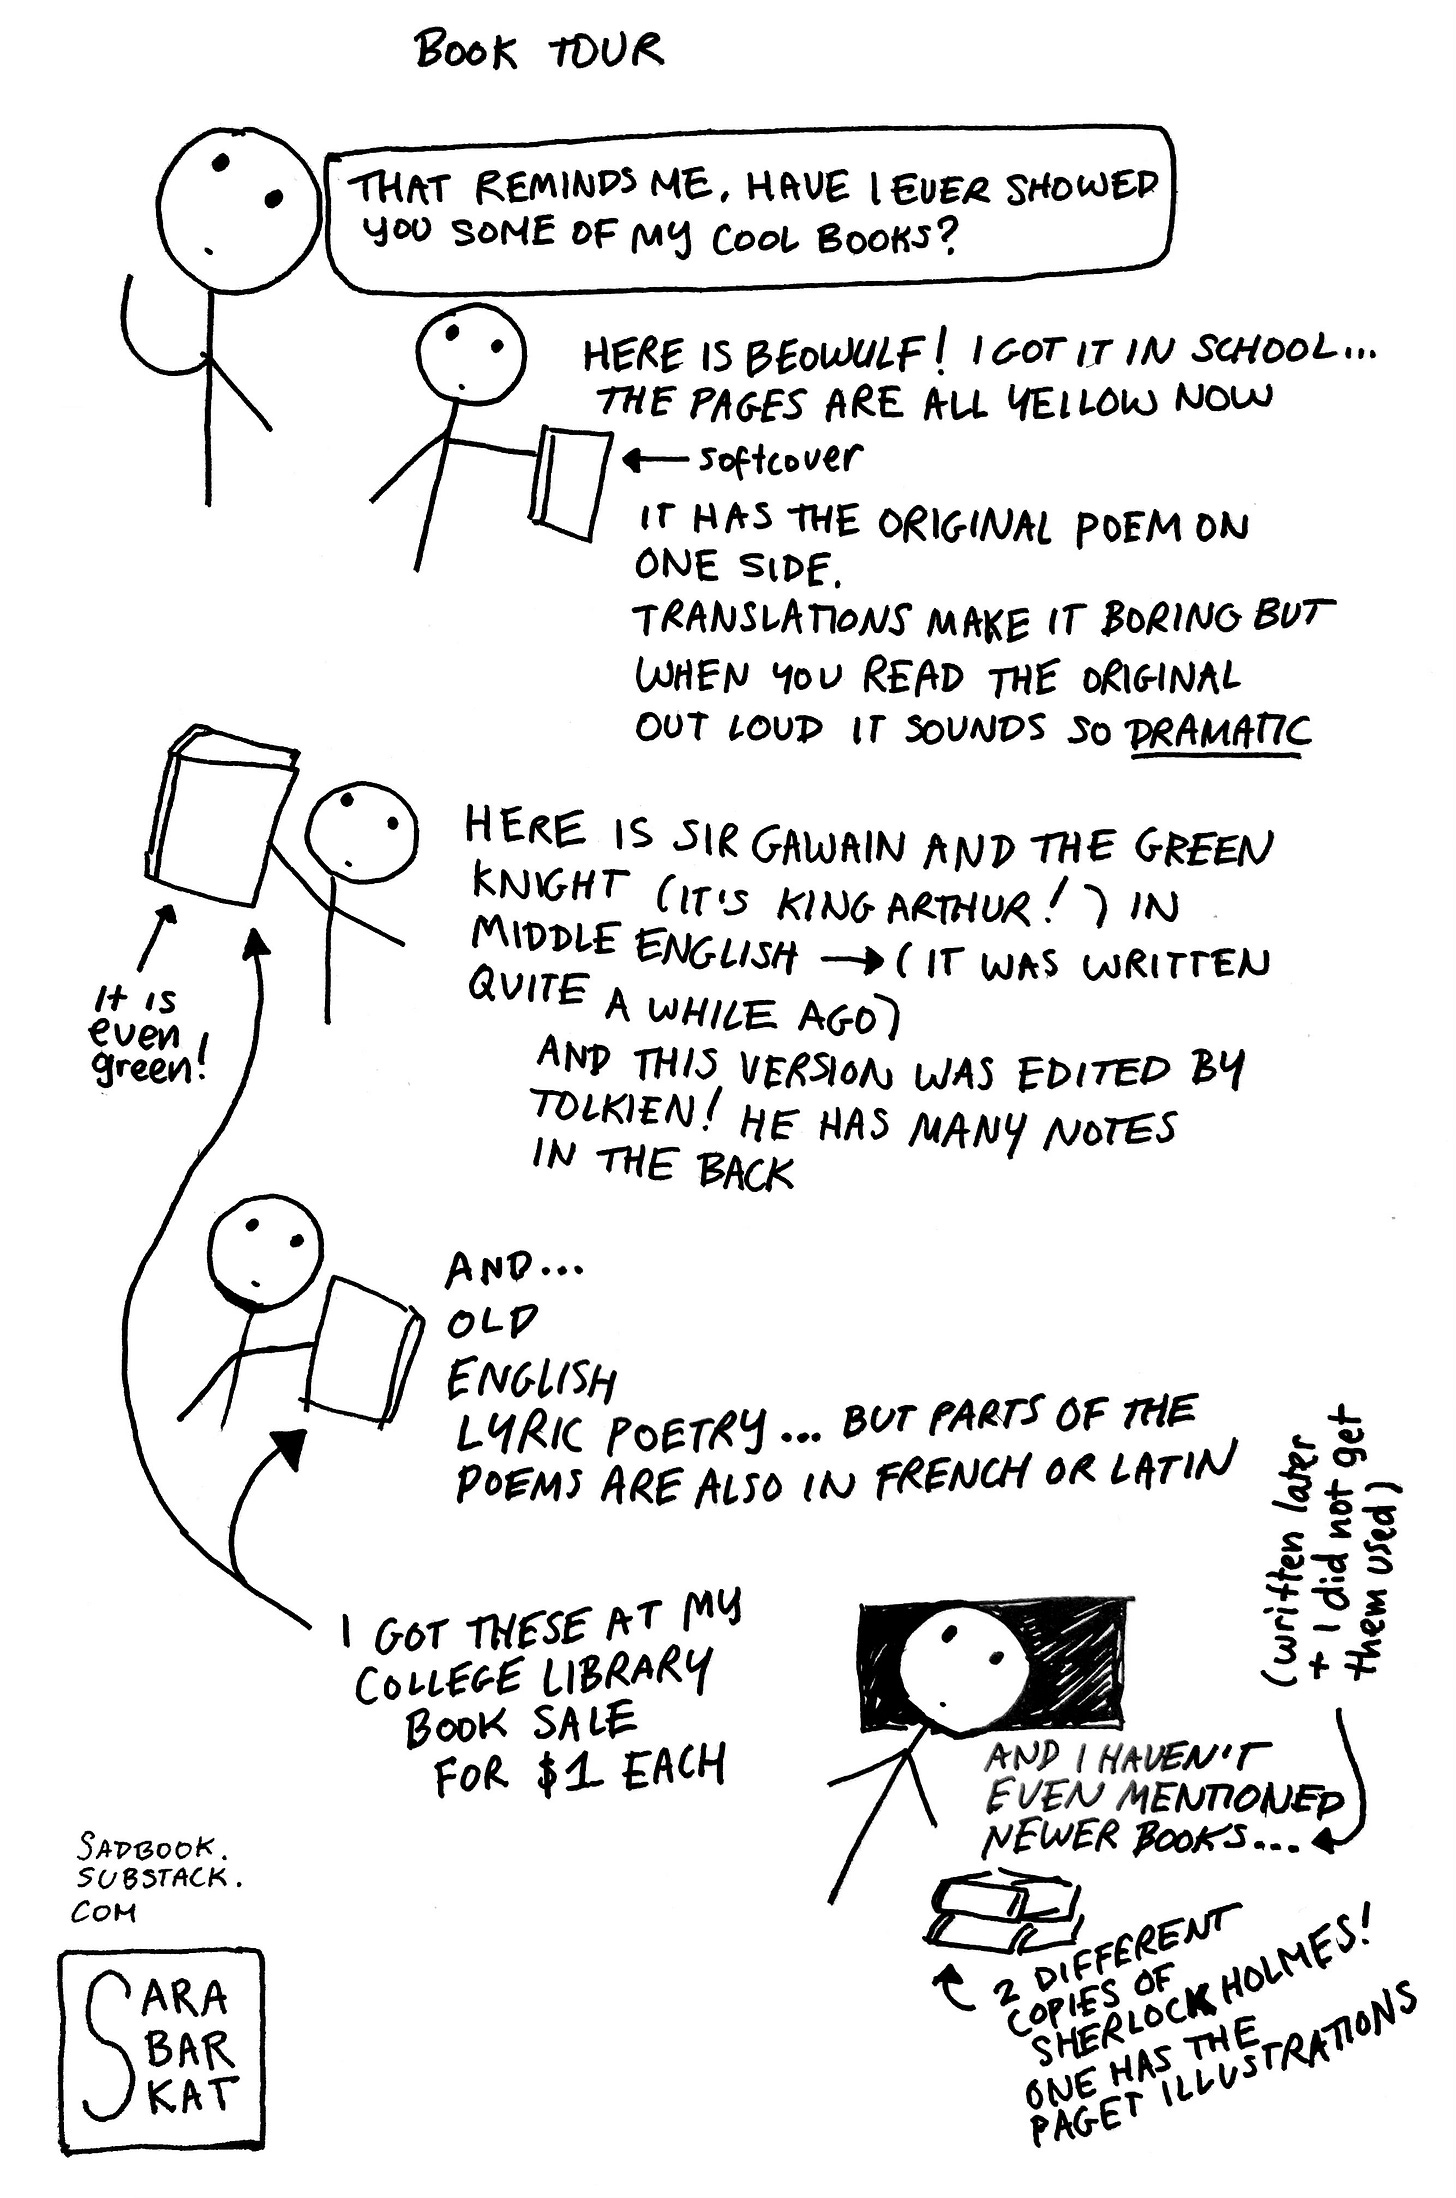 BOOK TOUR
THAT REMINDS ME, HAVE I EVER SHOWED
YOU SOME OF MY COOL BOOKS?
HERE IS BEOWULF! I GOT IT IN SCHOOL...
THE PAGES ARE ALL YELLOW NOW
softcover
IT HAS THE ORIGINAL POEM ON
ONE SIDE.
TRANSLATIONS MAKE IT BORING BUT
WHEN YOU READ THE ORIGINAL
OUT LOUD IT SOUNDS SO DRAMATIC
HERE IS SIR GAWAIN AND THE GREEN
KNIGHT (IT'S KING ARTHUR!) IN
MIDDLE ENGLISH → (IT WAS WRITTEN
QUITE A WHILE AGO)
AND THIS VERSION WAS EDITED BY
TOLKIEN! HE HAS MANY NOTES
IN THE BACK
It is
even
green!
AND...
OLD
ENGLISH
LYRIC POETRY... BUT PARTS OF THE
POEMS ARE ALSO IN FRENCH OR LATIN
I GOT THESE AT MY
COLLEGE LIBRARY
BOOK SALE
FOR $1 EACH
(written later
+ I did not get
them used)
AND I HAVEN'T
EVEN MENTIONED
NEWER BOOKS...
2 DIFFERENT
COPIES OF
SHERLOCK HOLMES!
ONE HAS THE
PAGET ILLUSTRATIONS
SADBOOK.
SUBSTACK.
COM
SARA
BAR
KAT